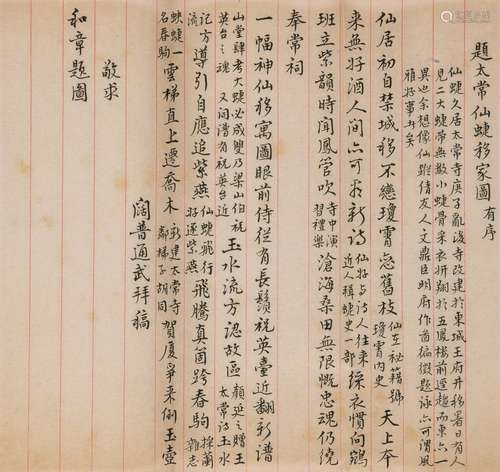 題太常仙蜨移家圖 有序
仙蜨久居太常寺庚子亂後寺改建於東城王府井移署日有人
見二大蜨帶無數小蜨骨采衣翔於五鳳樓前逕趨而東亦一
異也余想像仙踪倩友人文鼎臣明府作圖徧徵題詠亦可謂風
雅好事者矣
仙居初自禁城移不戀瓊霄忘舊枝 仙在秘籍號瓊霄內史 天上本
來無好酒人間亦可求新詩 仙好與詩人往來近人輯蜨史一部 綵衣慣向鵷
班立紫韻時聞鳳管吹 寺中演習禮樂 滄海桑田無限慨忠魂仍繞
奉常祠
一幅神仙移寓圖眼前侍從有長鬚祝英臺近翻新譜
山堂肆考大蜨必成雙乃梁山伯祝英台之魂又詞譜有祝英台近 玉水流方認故區 顏延之贈王太常詩玉水
記方流 導引自應追紫燕 仙蜨飛行好逐紫燕 飛騰真箇跨春駒 採蘭雜志
蛺蜨一名春駒 雲梯直上遷喬木 新建太常寺鄰梯子胡同 賀廈爭來倒玉壺
闊普通武拜稿
敬求
和章題圖